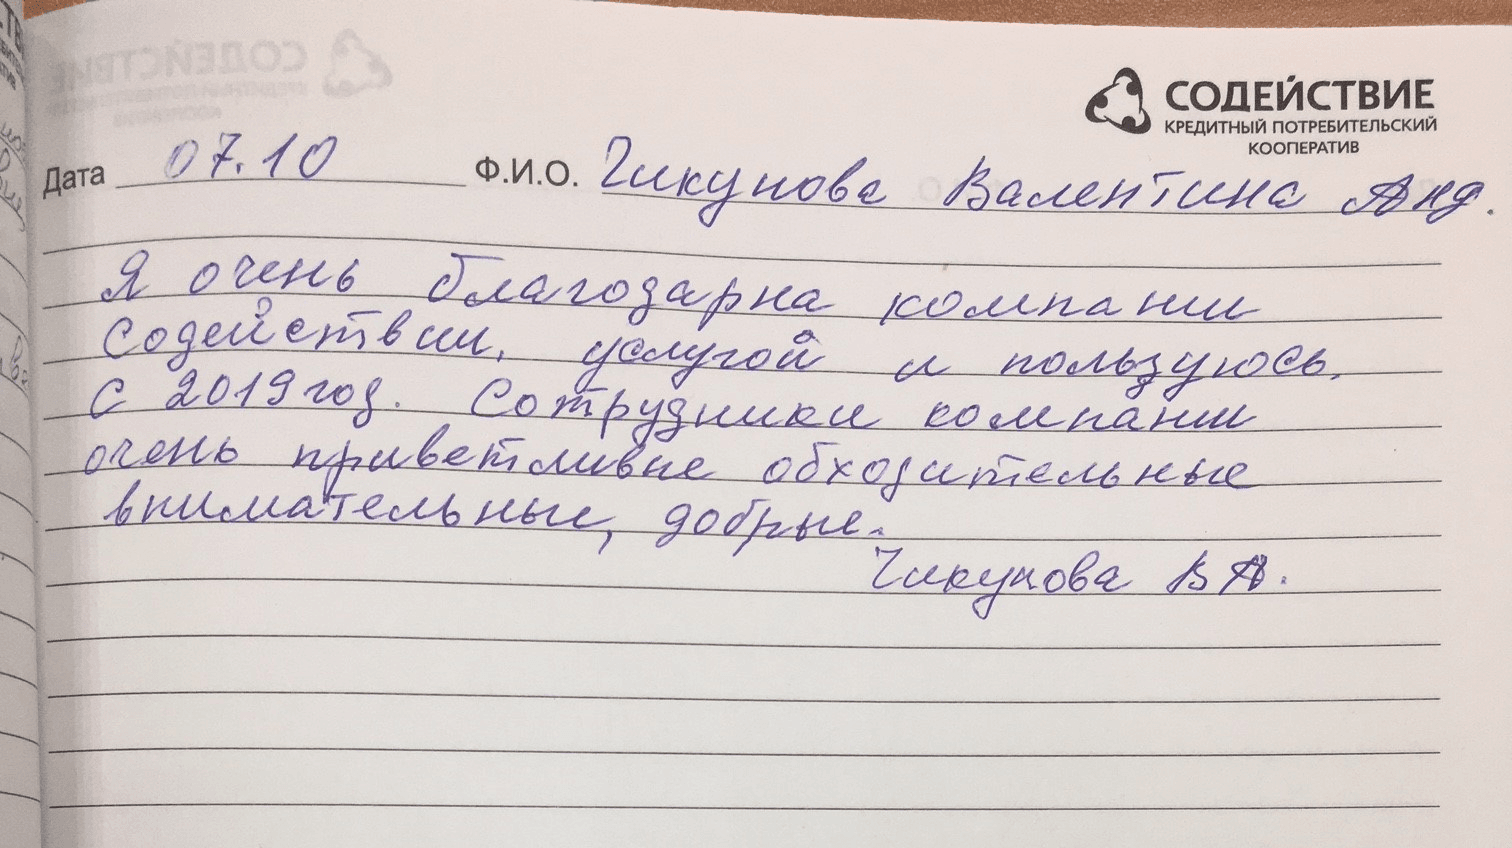 СОДЕЙСТВИЕ
КРЕДИТНЫЙ ПОТРЕБИТЕЛЬСКИЙ
КООПЕРАТИВ
Дата 07.10 Ф.И.О. Чикунова Валентина Анд.
Я очень благодарна компании
Содействии, услугой и пользуюсь.
С 2019 год. Сотрудники компании
очень приветливые обходительные
внимательные, добрые.
Чикунова В А.